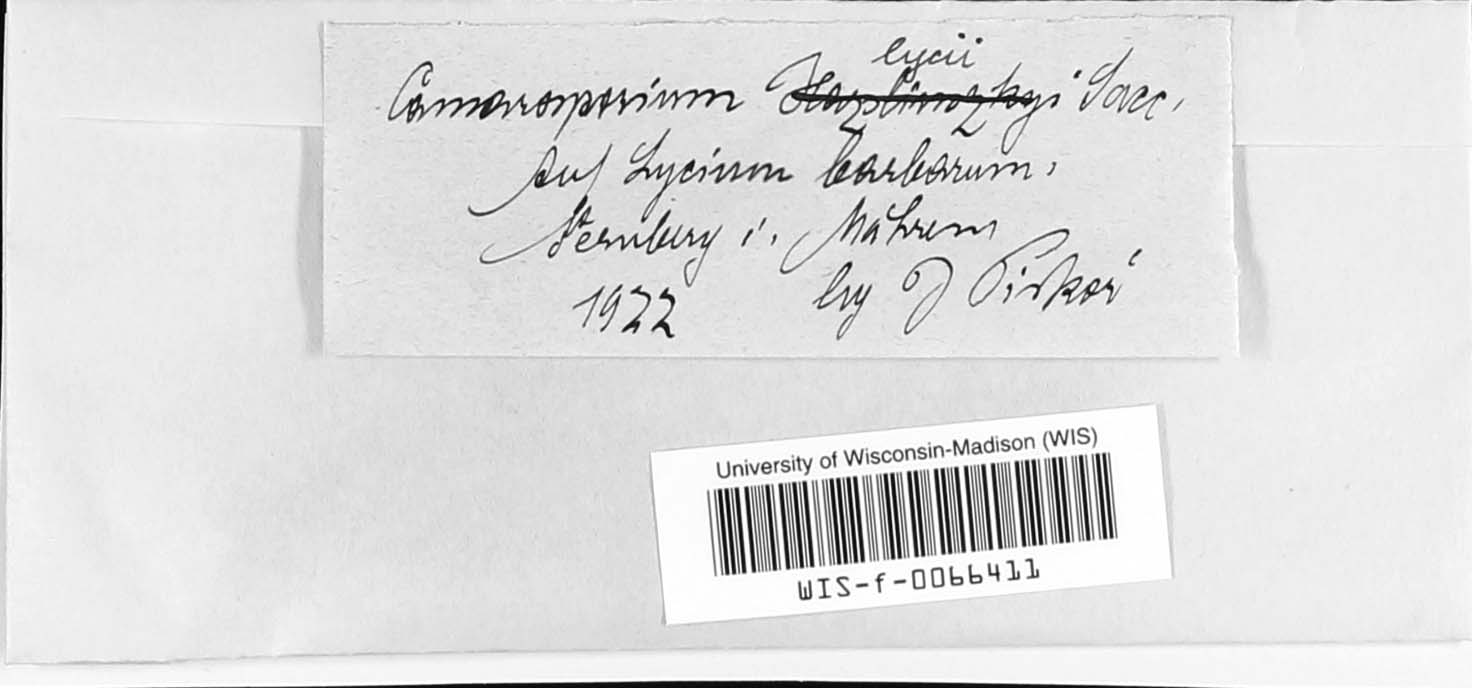 lycii
Camarosporium Hazslinszkyi Sacc.
Auf Lycium barbarum.
Sternberg i. Mähren
1922 leg J Piskoř
University of Wisconsin-Madison (WIS)
WIS-f-0066411